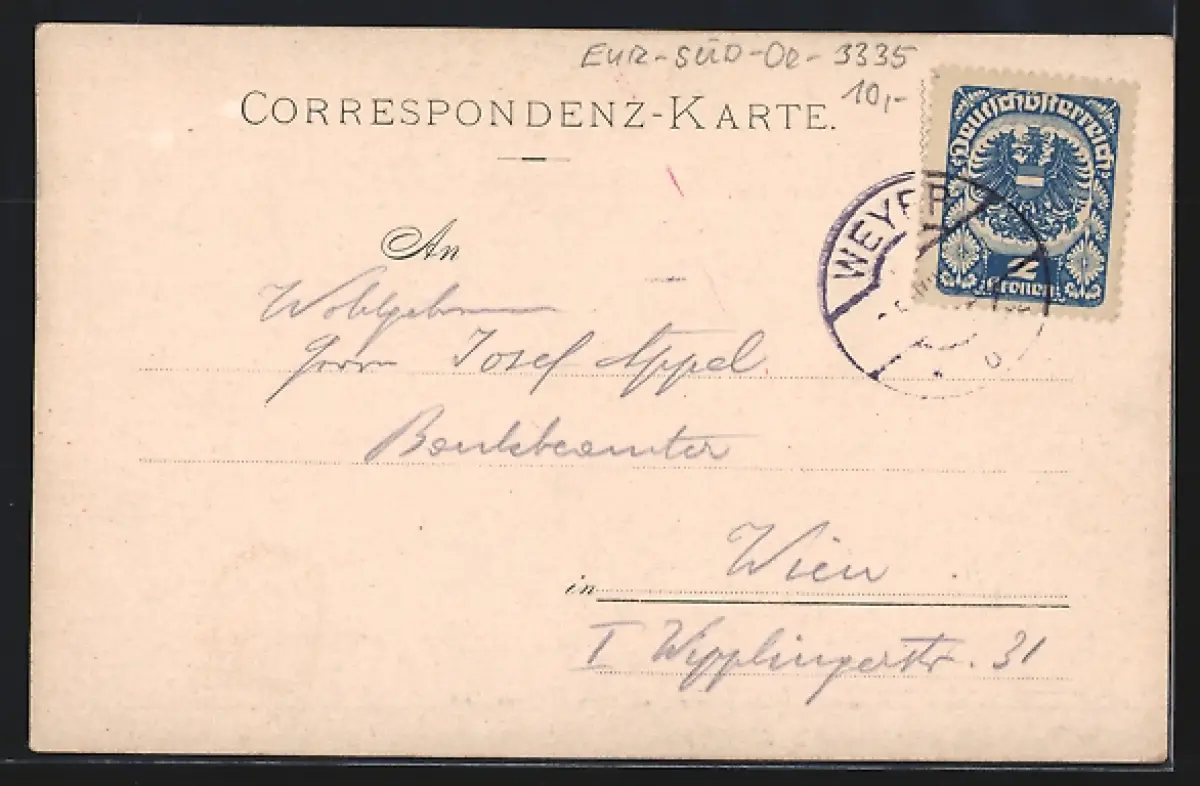 EUR-SÜD-OE-3335
10,-
CORRESPONDENZ-KARTE.
Deutschösterreich
2
Kronen
WEYER
An
Wohlgeboren
Herrn Josef Appel
Bankbeamter
in Wien
I Wipplingerstr. 31